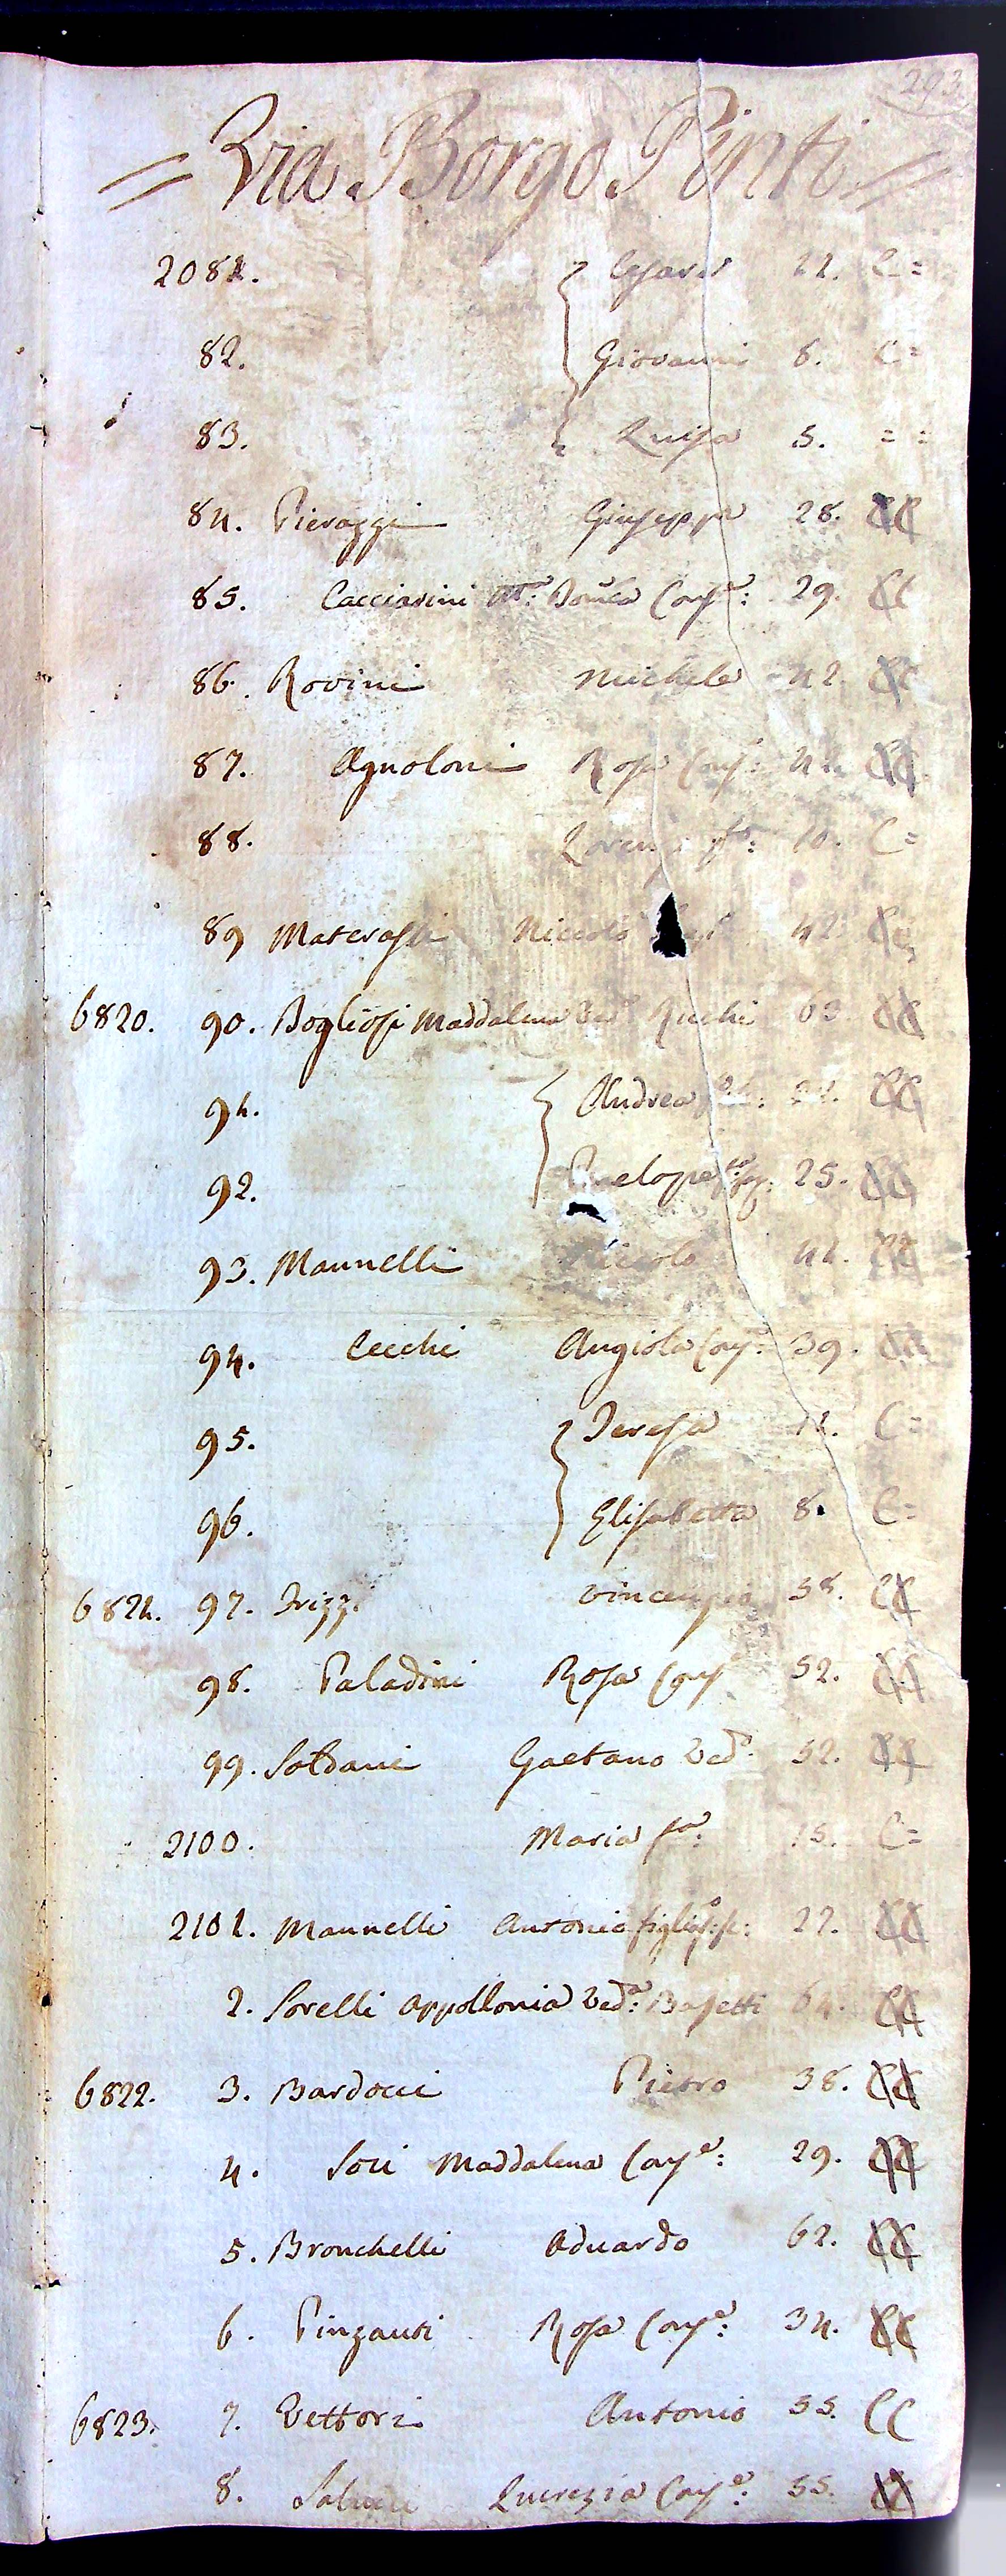 293
= Via Borgo Pinti =
2081. Cesare 11. C =
82. Giovanni 6. C =
83. Luisa 5. = =
84. Pieraggi Giuseppe 28. CC
85. Cacciarini Ma: Domca Conge: 29. CC
86. Rovini Michele 42. CC
87. Agnoloni Rosa Conge: 41. CC
88. Lorenzo fo: 10. C =
89 Materassi Niccolò 42. CC
6820. 90. Bogliosi Maddalena Veda Ruchi 63 CC
91. Andrea CC
92. Penelope 25. CC
93. Mannelli Niccolò 41. CC
94. Cecchi Angiola Conge: 39. CC
95. Teresa 11. C =
96. Elisabetta 8. C =
6821. 97. Frizzi Vincenzio 58. CC
98. Paladini Rosa Conge 52. CC
99. Soldani Gaetano Vedo. 52. CC
2100. Maria fa: 15. C =
2101. Mannelli Antonio 22. CC
2. Sorelli Appollonia Veda: Basetti 64. CC
6822. 3. Bardocci Pietro 38. CC
4. Soci Maddalena Conge: 29. CC
5. Bronchelli Aduardo 62. CC
6. Pinzauti Rosa Conge: 34. CC
6823. 7. Vettori Antonio 55. CC
8. Lucrezia Conge: 55. CC